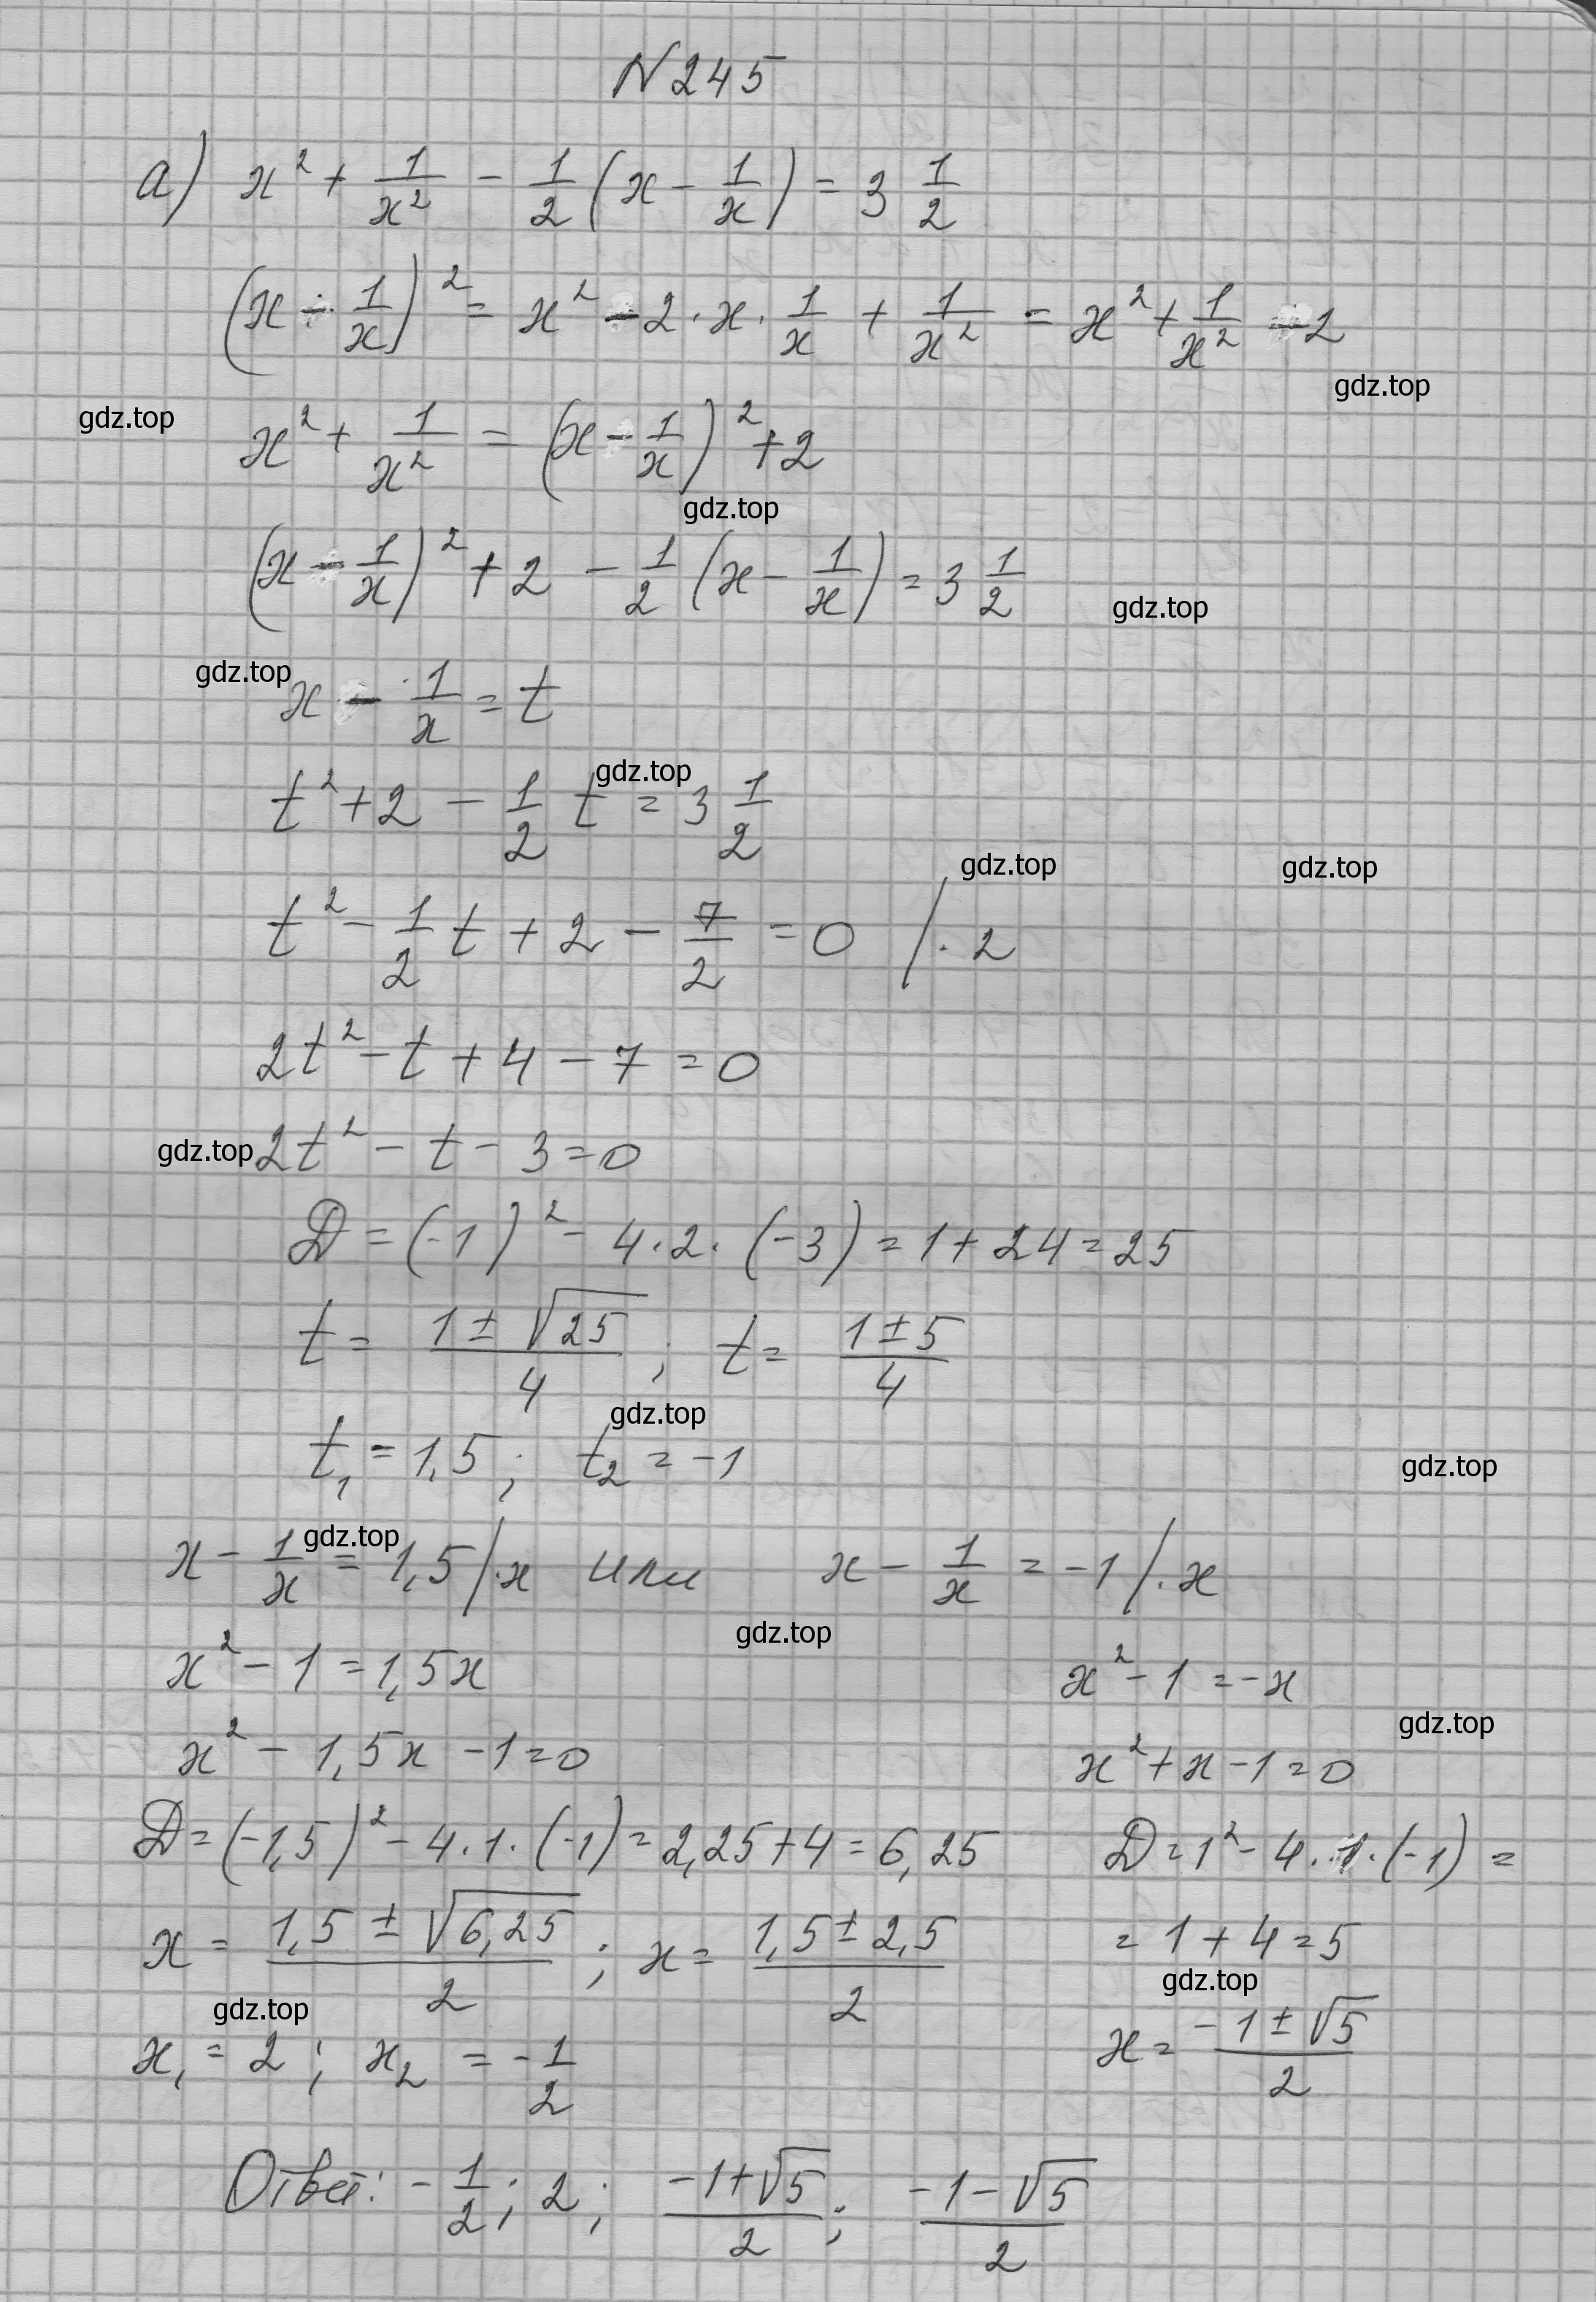 N 245
а) x² + 1/x² - 1/2 (x - 1/x) = 3 1/2
(x - 1/x)² = x² - 2 · x · 1/x + 1/x² = x² + 1/x² - 2
gdz.top
gdz.top
x² + 1/x² = (x - 1/x)² + 2
gdz.top
(x - 1/x)² + 2 - 1/2 (x - 1/x) = 3 1/2
gdz.top
gdz.top
x - 1/x = t
gdz.top
t² + 2 - 1/2 t = 3 1/2
gdz.top gdz.top
t² - 1/2 t + 2 - 7/2 = 0 /· 2
2t² - t + 4 - 7 = 0
gdz.top 2t² - t - 3 = 0
D = (-1)² - 4 · 2 · (-3) = 1 + 24 = 25
t = (1 ± √25)/4 ; t = (1 ± 5)/4
gdz.top
t₁ = 1,5 ; t₂ = -1
gdz.top
gdz.top
x - 1/x = 1,5 /· x или x - 1/x = -1 /· x
gdz.top
x² - 1 = 1,5x x² - 1 = -x
gdz.top
x² - 1,5x - 1 = 0 x² + x - 1 = 0
D = (-1,5)² - 4 · 1 · (-1) = 2,25 + 4 = 6,25 D = 1² - 4 · 1 · (-1) =
x = (1,5 ± √6,25)/2 ; x = (1,5 ± 2,5)/2 = 1 + 4 = 5
gdz.top
gdz.top
x₁ = 2 ; x₂ = -1/2 x = (-1 ± √5)/2
Ответ: -1/2 ; 2 ; (-1 + √5)/2 ; (-1 - √5)/2